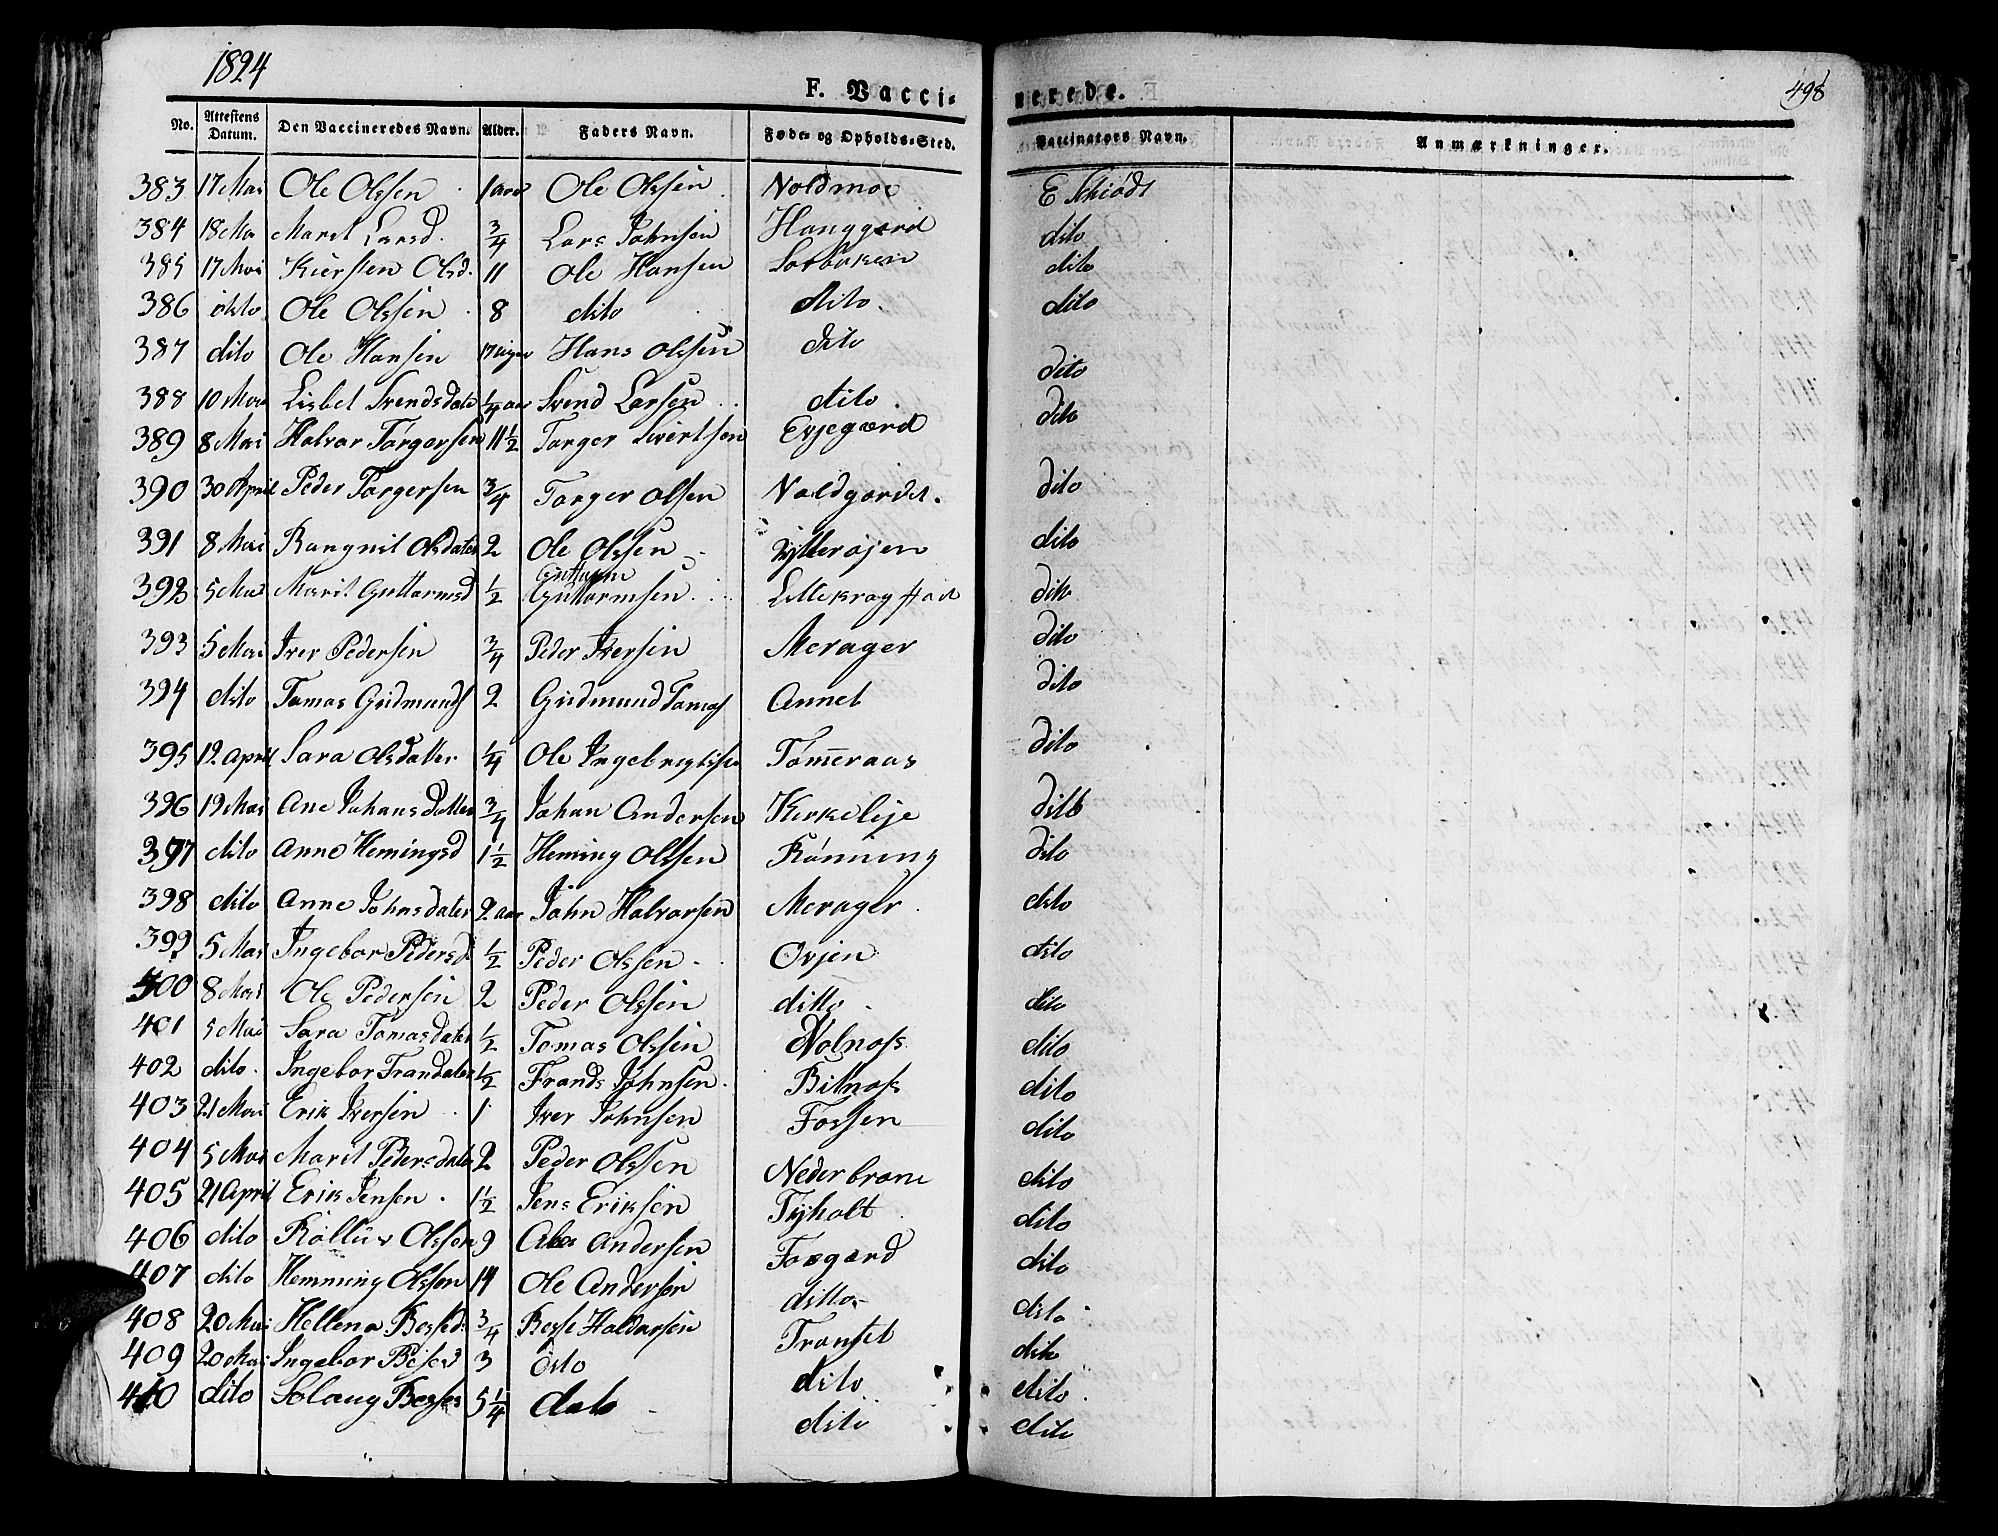 1824
F. Vacci-
nerede.
498
No. Attestens Datum. Den Vaccineredes Navn. Alder. Faders Navn. Føde- og Opholds-Sted. Vaccinators Navn. Anmærkninger.
383 17 Mai Ole Olssen 1 aar Ole Olssen Noldmoe E Schiødt
384 18 Ma Marit Larsd. 3/4 Lars Johnsen Hanggard dito
385 17 Mai Kiersten Olsd. 11 Ole Hansen Solbaken dito
386 dito Ole Olssen 8 dito dito. dito
387 dito Ole Hansen 17 uger Hans Olssen dito dito
388 10 Mai Lisbet Svendsdater 1/4 aar Svend Larsen dito. dito
389 8 Mai Halvor Torgersen 11 1/2 Torger Sivertsen Evjegærd dito
390 30 April Peder Torgersen 3/4 Torger Olsen Noldgardet. dito
391 8 Mai Rangnil Olsdater 2 Ole Olssen Ytterøjen dito
392 5 Mai Marit Guttormsd 1/2 Guttorm Guttormsen Lillekragstad dito
393 5 Mai Iver Pedersen 3/4 Peder Iversen Merager dito
394 dito Tomas Gudmunds 2 Gudmund Tomas Annet dito
395 12 April Sara Olsdatter 1/4 Ole Ingebregtsen Tømeraas dito
396 19 Mai Ane Johansdatter 3/4 Johan Andersen Kirkeleje dito
397 dito Anne Hemingsd 1 1/2 Heming Olssen Rønning dito
398 dito Anne Johnsdater 2 aar John Halvorsen Merager. dito
399 5 Mai Ingebor Pedersd 1/2 Peder Olssen Ovjen dito
400 8 Mai Ole Pedersen 2 Peder Olssen ditto dito
401 5 Mai Sara Tomasdater 1/2 Tomas Olssen Nolnoss dito
402 dito. Ingebor Frandater 1/2 Frands Johnsen. Bitnok dito
403 21 Mai Erik Iversen 1 Iver Johnsen Fossen dito
404 5 Mai Marit Pedersdater 2 Peder Olssen Nederbrone dito
405 21 April Erik Jensen 1 1/2 Jens Eriksen Tyholt dito
406 dito Olssen 9 Andersen Fosgard dito
407 dito Hemming Olssen 14 Ole Andersen ditto dito
408 20 Mai Hellena Bessed: 3/4 Besse Haldorsen Fronset dito
409 20 Mai Ingebor 3 dito dito dito
410 dito Solaug Besses 5 1/4 dito dito dito